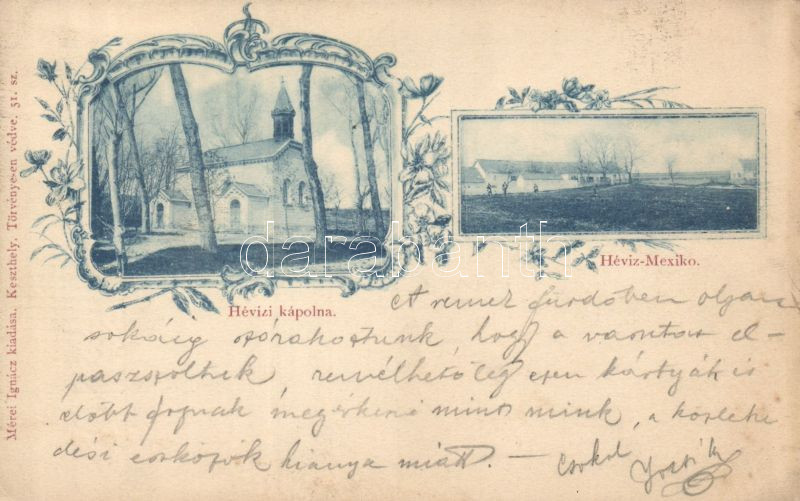 Mérei Ignácz kiadása, Keszthely. Törvényesen védve. 31. sz.
Hévizi kápolna.
Héviz-Mexiko.
darabanth
A remek fürdőben olyan
sokáig szórakoztunk, hogy a vonatot el-
paszszoltuk, remélhetőleg ezen kártyák is
előbb fognak megérkezni mint mink, a közleke
dési eszközök hianya miatt. —
Csokol